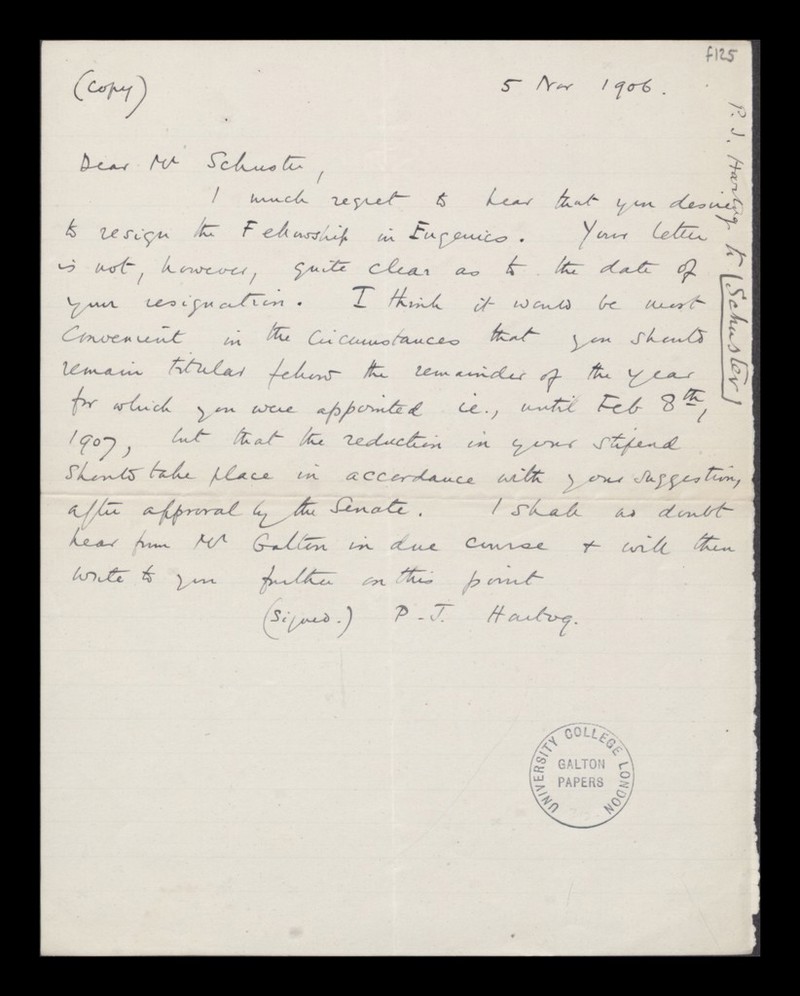 f125
(Copy)
5 Nov 1906.
Dear Mr Schuster,
I much regret to hear that you desire
to resign the Fellowship in Eugenics. Your letter
is not, however, quite clear as to the date of
your resignation. I think it would be most
convenient in the circumstances that you should
remain titular fellow the remainder of the year
for which you were appointed i.e., until Feb 8th,
1907, but that the reduction in your stipend
should take place in accordance with your suggestion,
after approval by the Senate. I shall no doubt
hear from Mr Galton in due course + will then
write to you further on this point
(Signed.) P-J. Hartog.
P. J. Hartog to Schuster
UNIVERSITY COLLEGE LONDON
GALTON
PAPERS